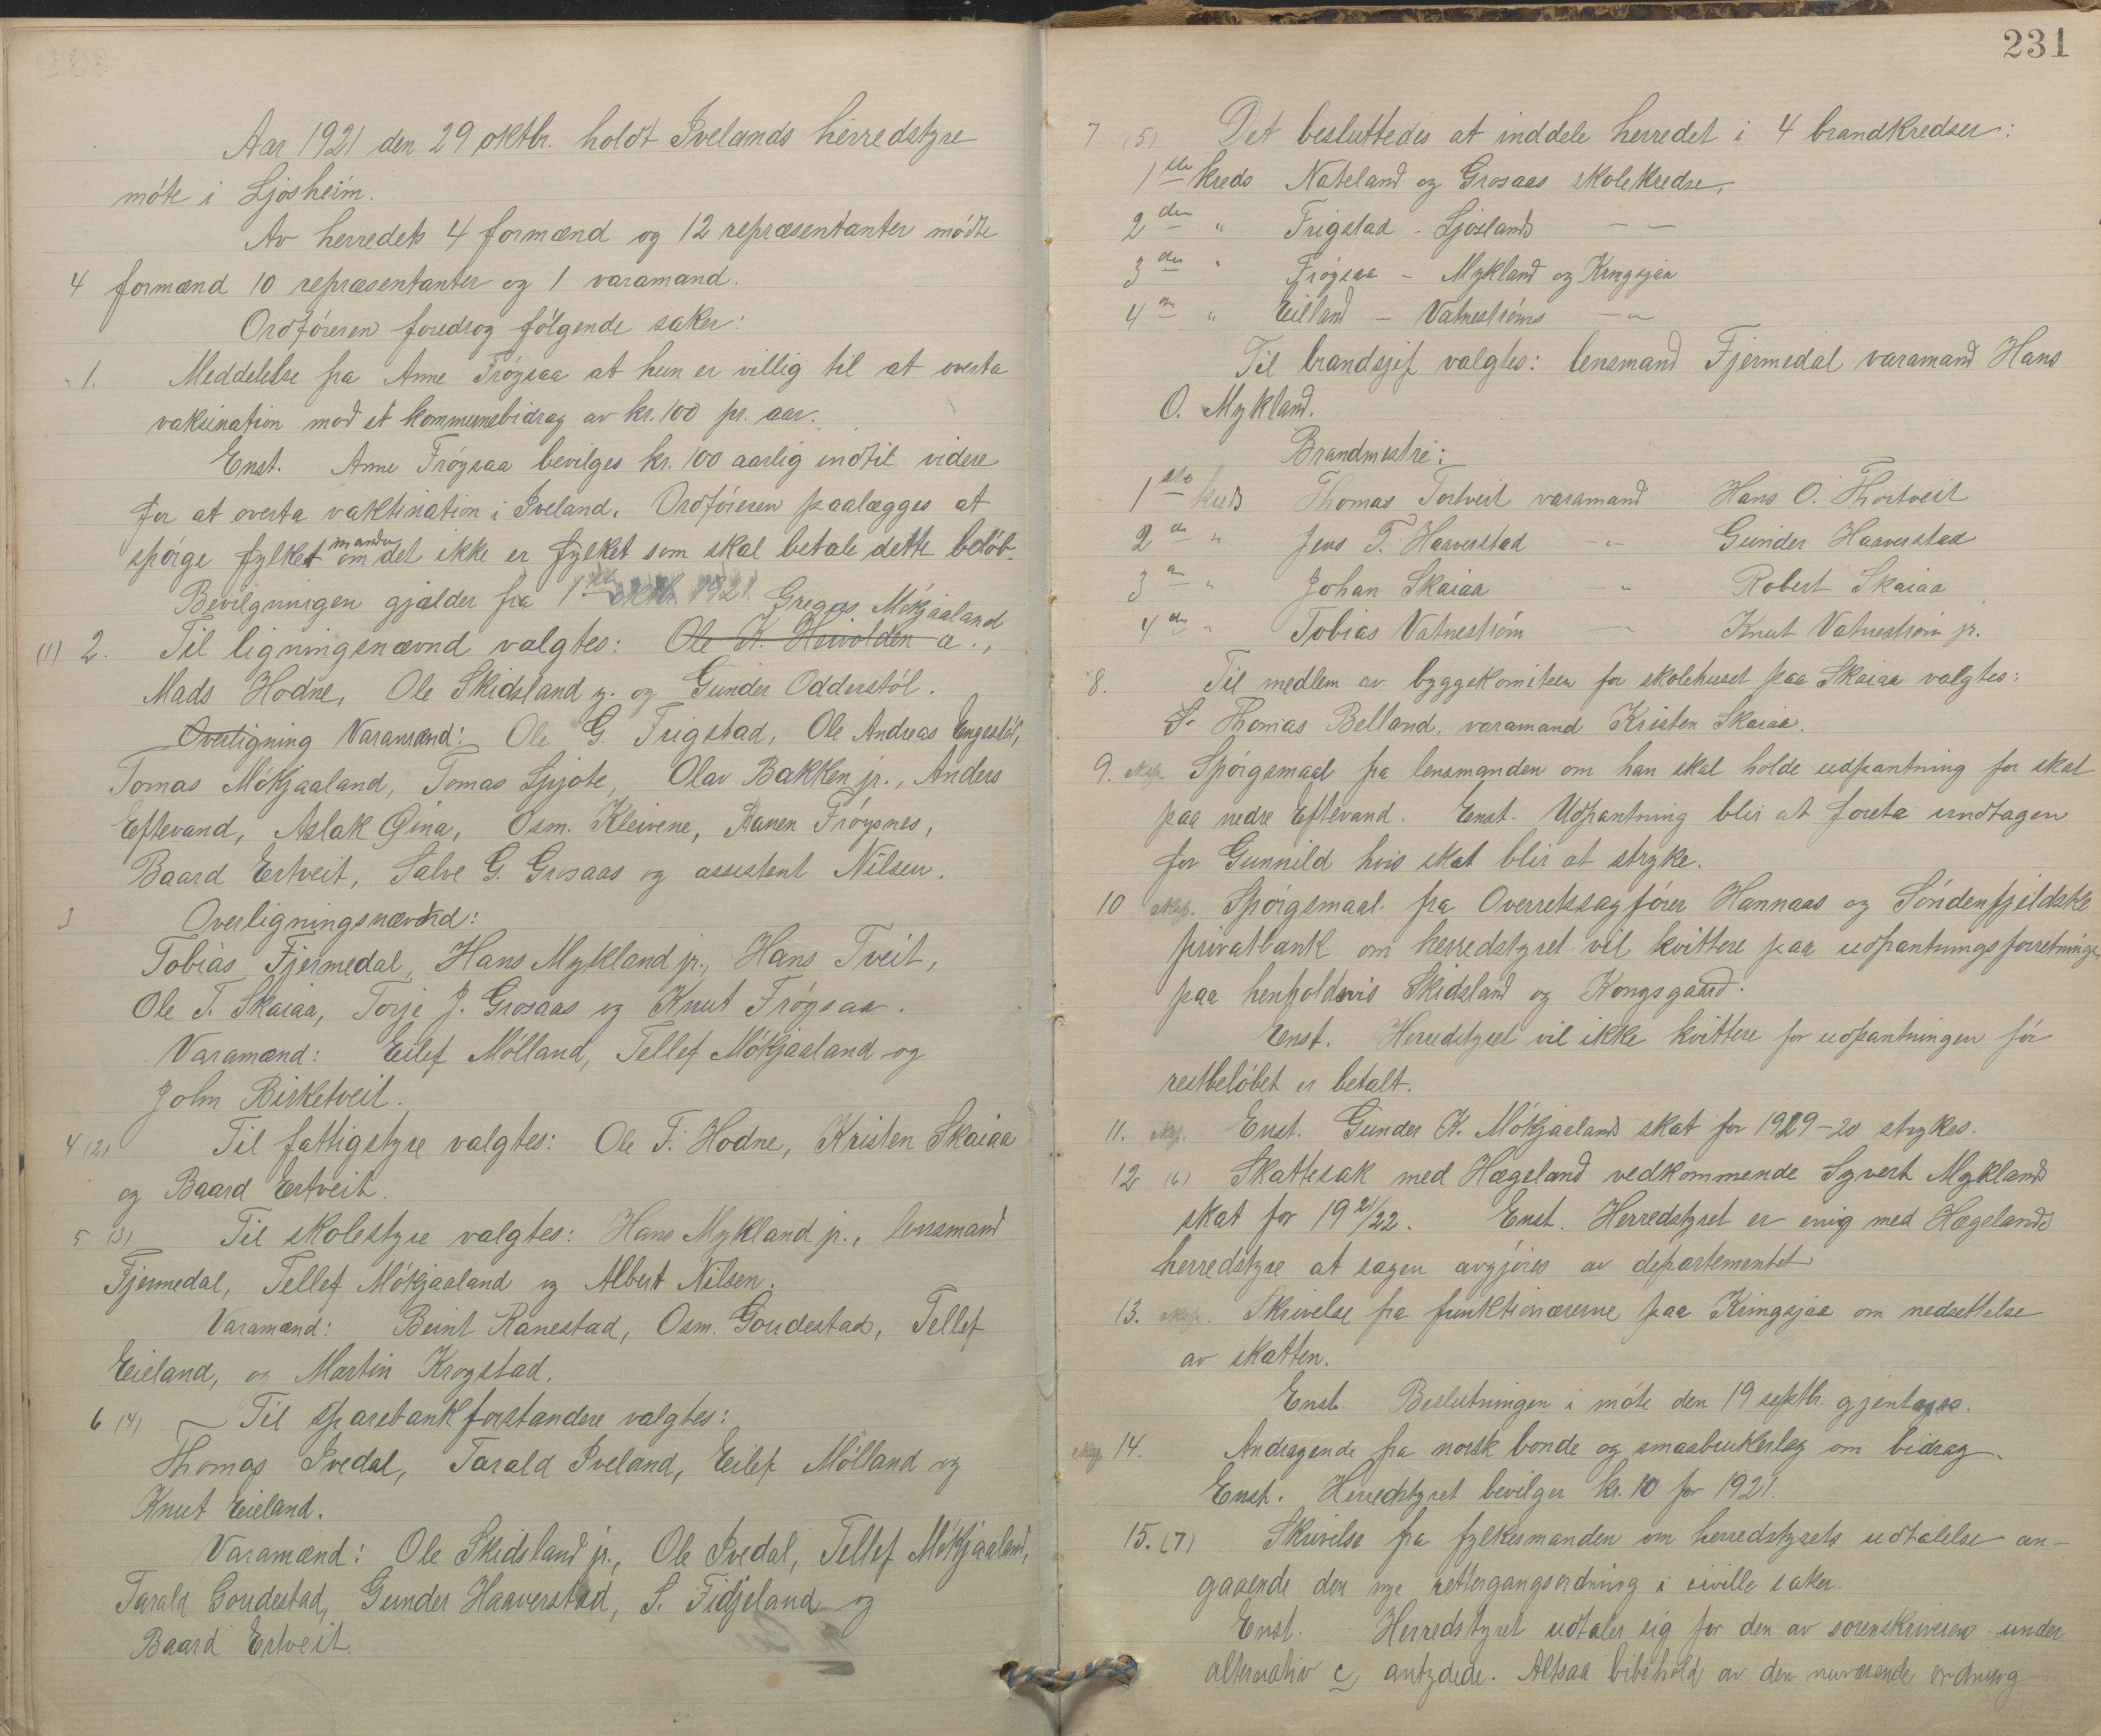 Aar 1921 den 29 oktbr. holdt Ivelands herredstyre
möte i Ljosheim.
Av herredets 4 formænd og 12 repræsentanter mödte
4 formænd 10 repræsentanter og 1 varamand.
Ordföreren foredrog fölgende saker:
1. Meddelelse fra Anne Fröysaa at hun er villig til at overta
vaksination mod et kommunebidrag av kr. 100 pr. aar.
Enst. Anne Fröysaa bevilges kr. 100 aarlig indtil videre
for at overta vaktination i Iveland. Ordföreren paalægges at
spörge fylkesmanden om det ikke er fylket som skal betale dette belöb.
Bevilgningen gjælder fra 1ste oktbr. 1921. Gregas Mökjaaland
(1) 2. Til ligningsnævnd valgtes: Ole K. Heivolden æ.,
Mads Hodne, Ole Skidsland y. og Gunder Odderstöl.
Overligning Varamænd: Ole G. Frigstad, Ole Andreas Engestöl,
Tomas Mökjaaland, Tomas Spjote, Olav Bakken jr., Anders
Eftevand, Aslak Øina, Osm. Kleivene, Aanen Fröysnes,
Baard Ertveit, Salve G. Grosaas og assistent Nilsen.
3 Overligningsnævnd:
Tobias Fjermedal, Hans Mykland jr., Hans Tveit,
Ole T. Skaiaa, Torje J. Grosaas og Knut Fröysaa.
Varamænd: Eilef Mölland, Tellef Mökjaaland og
John Birketveit.
4 (2) Til fattigstyre valgtes: Ole F. Hodne, Kristen Skaiaa
og Baard Ertveit.
5 (3) Til skolestyre valgtes: Hans Mykland jr., lensmand
Fjermedal, Tellef Mökjaaland og Albert Nilsen.
Varamænd: Beint Ranestad, Osm. Goudestad, Tellef
Eieland, og Martin Krogstad.
6 (4) Til sparebankforstandere valgtes:
Thomas Ivedal, Tarald Iveland, Eilef Mölland og
Knut Eieland.
Varamænd: Ole Skidsland jr., Ole Ivedal, Tellef Mökjaaland,
Tarald Goudestad, Gunder Haaverstad, S. Fidjeland og
Baard Ertveit.
231
7 (5) Det besluttedes at inddele herredet i 4 brandkredser:
1ste kreds Nateland og Grosaas skolekredse,
2den " Frigstad - Ljoslands — —
3die " Fröysaa - Mykland og Kringsjaa
4de " Eilland - Vatneströms — " —
Til brandsjef valgtes: lensmand Fjermedal varamand Hans
O. Mykland.
Brandmestre:
1ste kreds Thomas Tortveit varamand Hans O. Thortveit
2den " Jens T. Haaverstad — " — Gunder Haaverstad
3die " Johan Skaiaa " Robert Skaiaa
4de " Tobias Vatneström — " — Knut Vatneström jr.
8. Til medlem av byggekomiteen for skolehuset paa Skaiaa valgtes:
S. Thomas Belland, varamand Kristen Skaiaa.
9. Eksp. Spörgsmaal fra lensmanden om han skal holde udpantning for skat
paa nedre Eftevand. Enst. Udpantning blir at foreta undtagen
for Gunnild hvis skat blir at stryke.
10 Eksp. Spörgsmaal fra Overretssagförer Hannaas og Söndenfjeldske
privatbank om herredstyret vil kvittere paa udpantningsforretninge
paa henholdsvis Skidsland og Kongsgaard.
Enst. Herredstyret vil ikke kvittere for udpantningen för
restbelöbet er betalt.
11. Eksp. Enst. Gunder K. Mökjaalands skat for 1919-20 strykes.
12 (6) Skattesak med Hægeland vedkommende Syvert Myklands
skat for 1921/22. Enst. Herredstyret er enig med Hægelands
herredstyre at sagen avgjöres av departementet
13. Eksp. Skrivelse fra funktionærerne paa Kringsjaa om nedsettelse
av skatten.
Enst. Beslutningen i möte den 19 septbr. gjentages.
Eksp. 14. Andragende fra norsk bonde og smaabrukerlag om bidrag.
Enst. Herredstyret bevilger kr. 10 for 1921.
15. (7) Skrivelse fra fylkesmanden om herredstyrets udtalelse an-
gaaende den nye rettergangsordning i civille saker.
Enst. Herredstyret udtaler sig for den av sorenskriveren under
alternativ c, antydede. Altsaa bibehold av den nuværende ordning